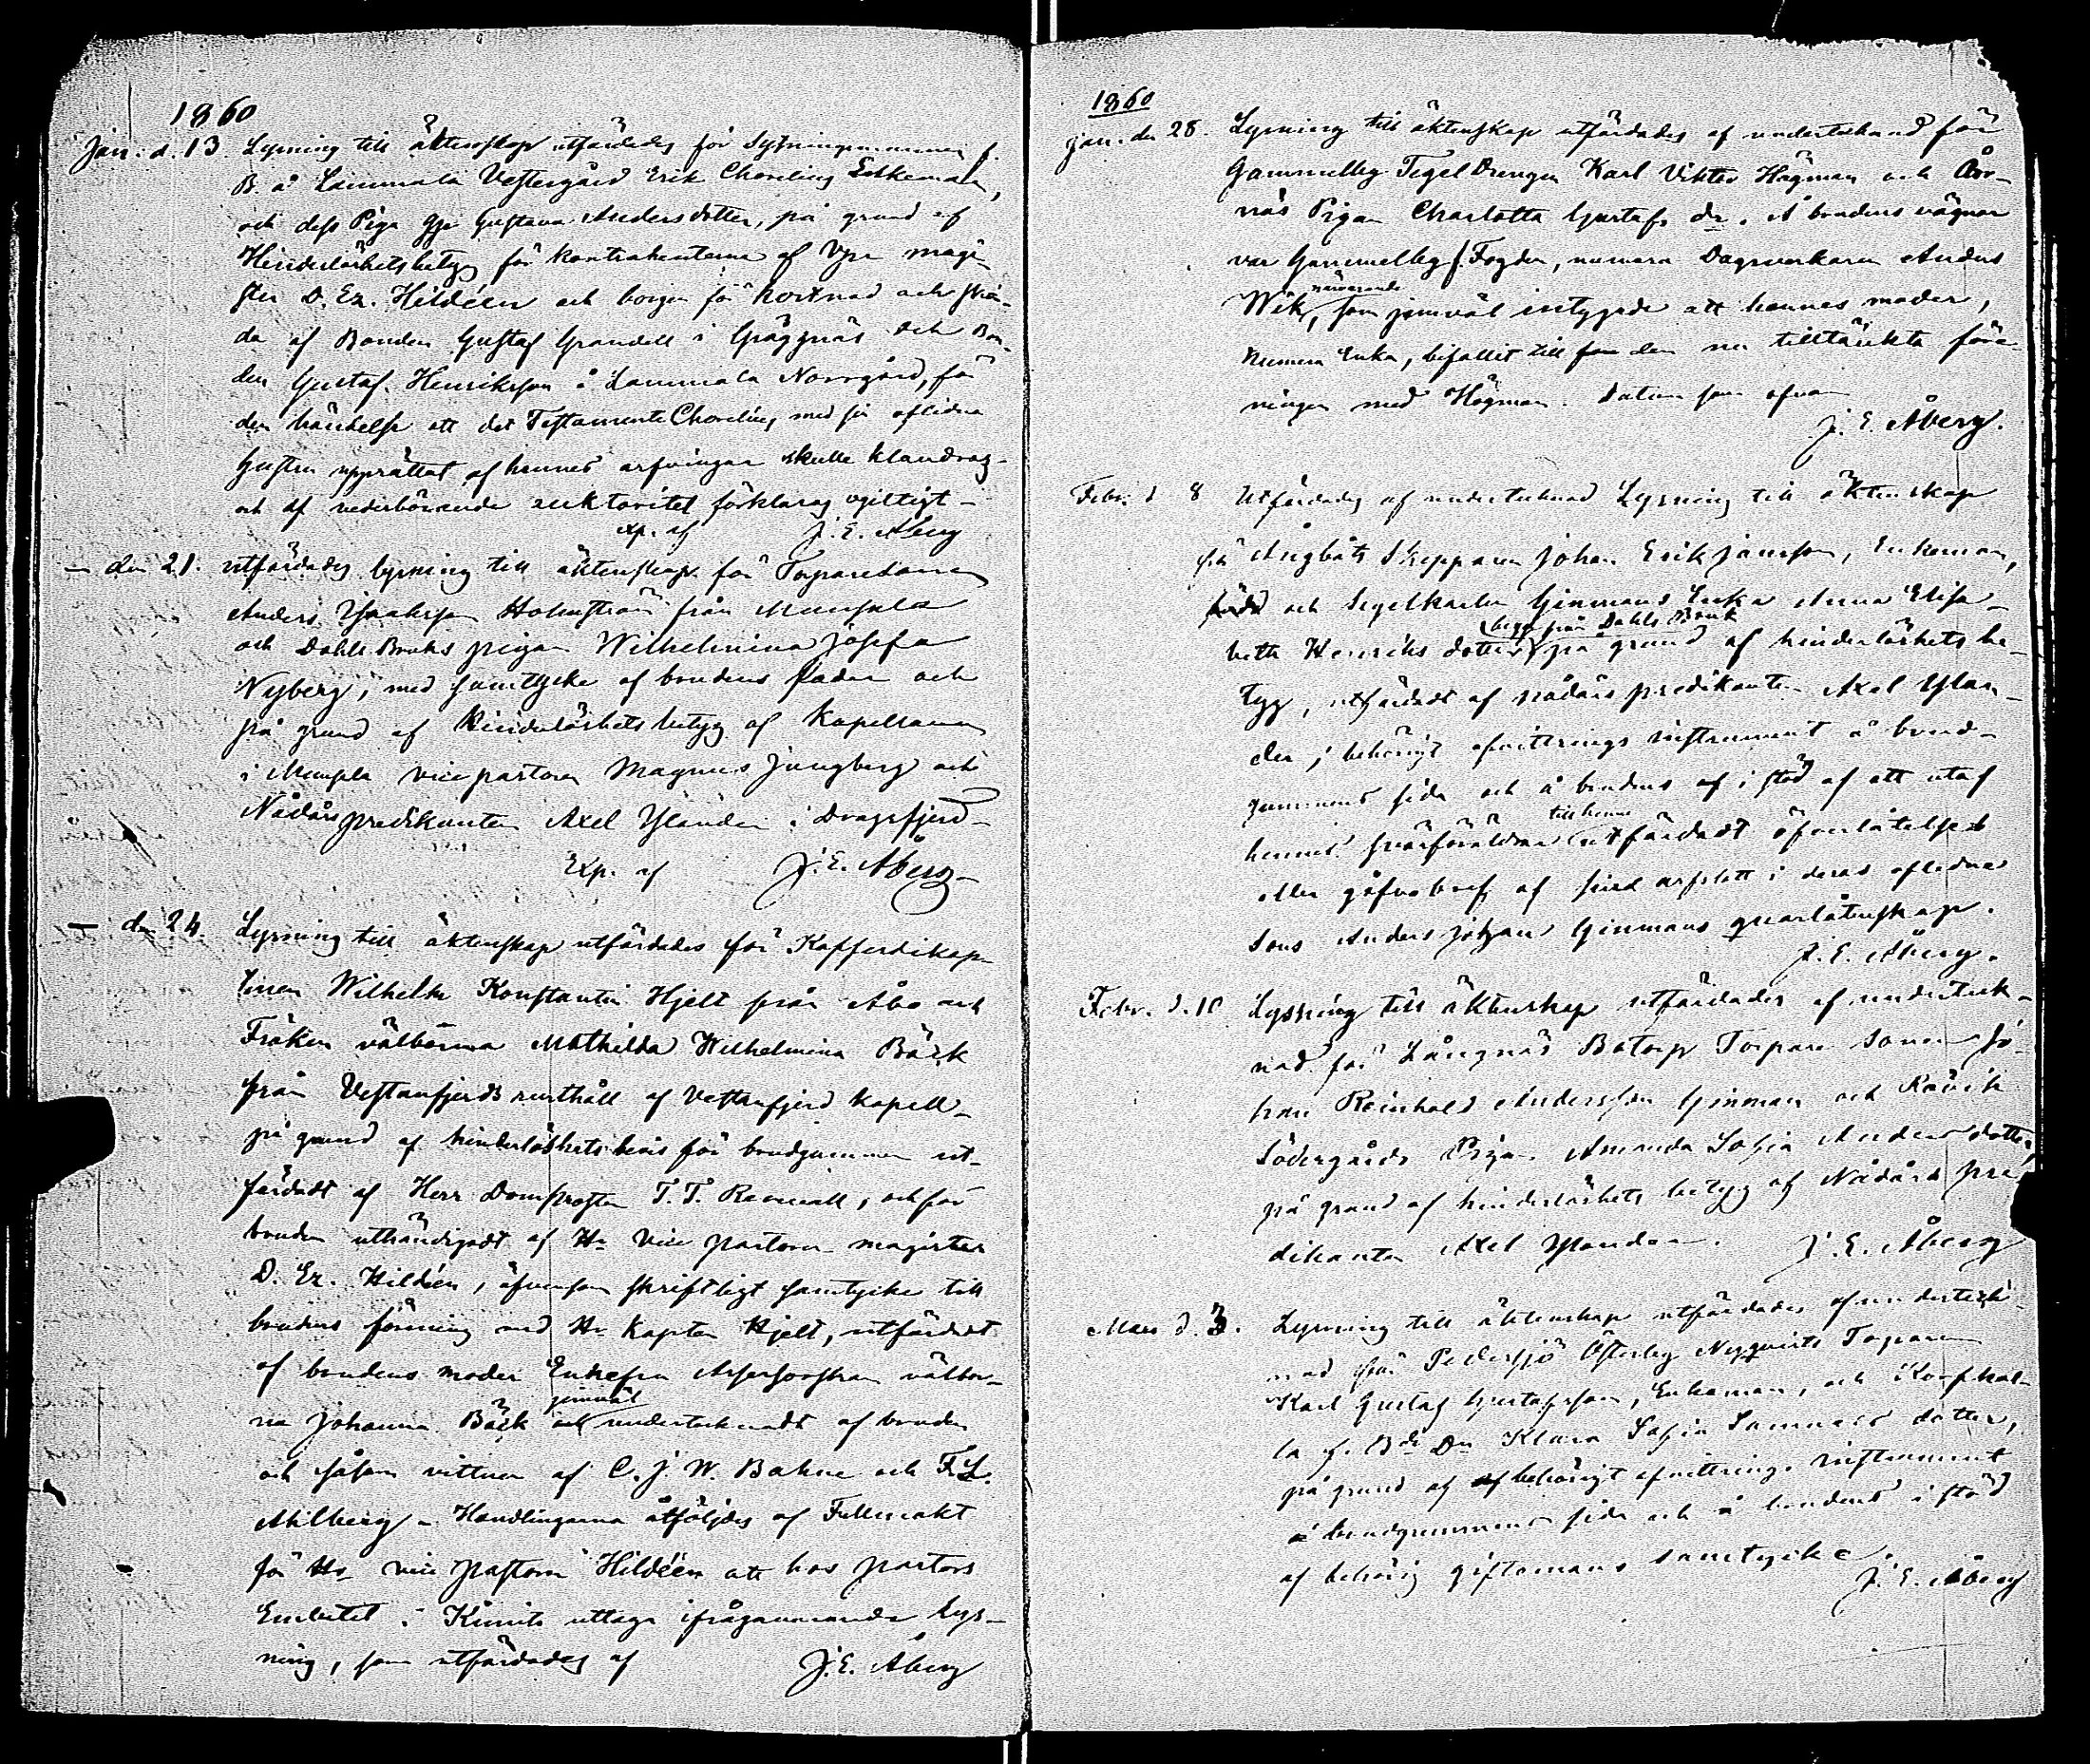 1860
Jan. d. 13. Lysning till äktenskap utfärdades för Sytningsmannen f.
B. å Lammala Vestergård Erik Chorelius Enkeman,
och dess Piga Gustava Andersdotter, på grund af
Hinderlöshetsbetyg för kontrahenterna af Vpr magi-
ster D. Ez. Hildéen och borgen för kostnad och ska-
da af Bonden Gustaf Grandell i Gräggnäs och Bon-
den Gustaf Henriksson å Lammala Norrgård, för
den händelse att det Testamente Chorelius med sin aflidna
hustru upprättat af hennes arfvingar skulle klandras
och af vederbörande auktoritet förklaras ogiltigt –
exp. af J. E. Åberg
– den 21. utfärdades lysning till äktenskap för Torparesonen
Anders Isaksson Holmström från
och Dahls Bruks pigan Wilhelmina Josefa
Nyberg, med samtycke af brudens fader och
på grund af hinderlöshetsbetyg af Kapellanen
i vice pastorn Magnus Ljungberg och
Nådårspredikanten Axel Ylander i Dragsfjerd –
Exp. af J. E. Åberg –
– den 24. Lysning till äktenskap utfärdades för Kofferdikap-
tenen Wilhelm Konstantin Hjelt från Åbo och
Fröken välborna Mathilda Wilhelmina Bäck
från Vestanfjerds rusthåll af Vestanfjerd kapell –
på grund af hinderlöshetsbevis för brudgummen ut-
färdadt af Herr Domprosten T. T. Renvall, och för
bruden uthändigadt af Hr Vice pastorn magister
D. Ez. Hildéen, äfvensom skriftligt samtycke till
brudens förening med Hr Kapten Hjelt, utfärdadt
af brudens moder Enkefru Assessorskan välbor-
na Johanna Bäck och jemväl undertecknadt af bruden
och såsom vittnen af C. J. W. Bahne och F. L.
Ahlberg – Handlingarna åtföljdes af Fullmakt
för Hr vice pastorn Hildéen att hos pastors
Embetet i Kimito uttaga ifrågavarande lys-
ning, som utfärdades af J. E. Åberg
1860
Jan. den 28. Lysning till äktenskap utfärdades af undertecknad för
Gammelby Tegel Drengen Karl Viktor Högman och
näs Pigan Charlotta Gustafs dr. Å brudens vägnar
var Gammelby f. Fogden, numera Dagsverkaren Anders
Wik, närvarande som jemväl intygade att hennes moder,
numera Enka, bifallit till den nu tilltänkta före-
ningen med Högman. Datum som ofvan
J. E. Åberg.
Febr. d 8 Utfärdades af undertecknad Lysning till äktenskap
för Ångbåts Skepparen Johan Erik Jansson, Enkeman,
och Segelkarlen Ginmans Enka Anna Elisa-
beth Henriks dotter, begge från Dahls Bruk på grund af hinderlöshets be-
tyg, utfärdadt af nådårs predikanten Axel Ylan-
der, behörigt afvittrings instrument å brud-
gummens sida och å brudens i stöd af ett utaf
hennes svärföräldrar till henne utfärdadt öfverlåtelse
eller gåfvobref af sin arfslott i deras aflidna
Sons Anders Johan Ginmans qvarlåtenskap.
J. E. Åberg.
Febr. d. 10 Lysning till äktenskap utfärdades af underteck-
nad för Långnäs Torpare Sonen Jo-
han Reinhold Andersson Ginman och
Södergårds Pigan Amanda Sofia Anders dotter,
på grund af hinderlöshets betyg af Nådårs pre-
dikanten Axel Ylander. J. E. Åberg
Mars d. 3. Lysning till äktenskap utfärdades af underteck-
nad för Pedersjö Österby Nyqvists Torparen
Karl Gustaf Gustafsson, Enkeman, och
la f. Bde Dn Klara Sofia dotter,
på grund af behörigt afvittrings instrument
å brudgummens sida och å brudens i stöd
af behörig giftomans samtycke.
J. E. Åberg